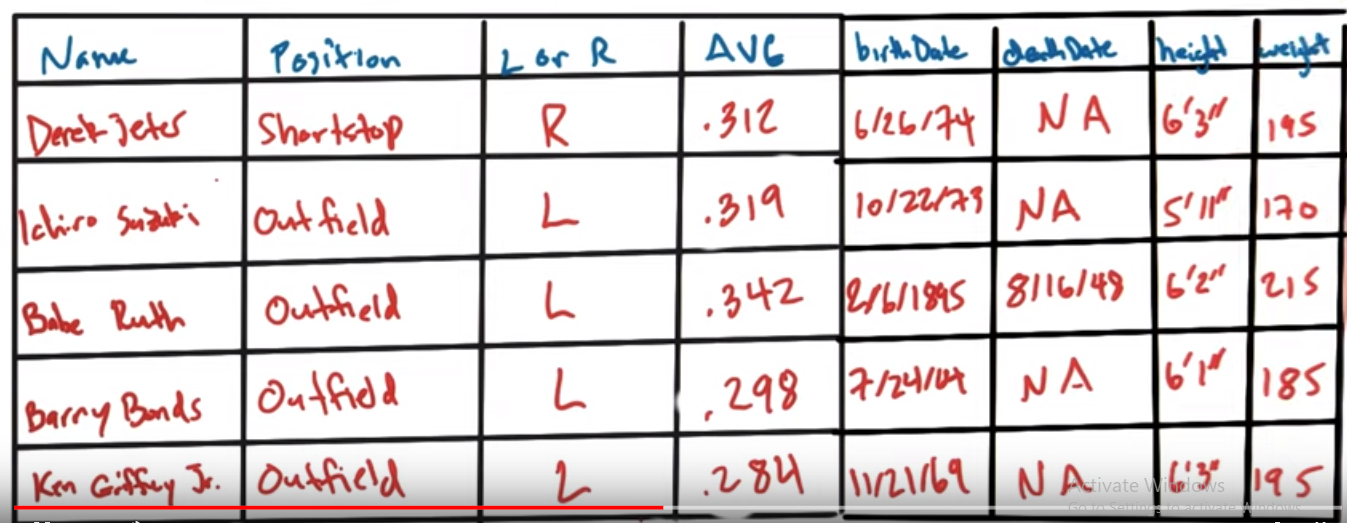 Name Position L or R AVG birthDate deathDate height weight
Derek Jeter Shortstop R .312 6/26/74 NA 6'3" 195
Ichiro Suzuki Outfield L .319 10/22/73 NA 5'11" 170
Babe Ruth Outfield L .342 2/6/1895 8/16/48 6'2" 215
Barry Bonds Outfield L .298 7/24/64 NA 6'1" 185
Ken Griffey Jr. Outfield L .284 11/21/69 NA 6'3" 195
Activate Windows
Go to Settings to activate Windows.